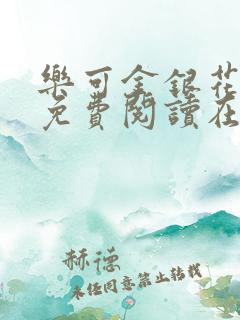 樂可金銀花
免費閱讀在
赫德
未經同意禁止轉載